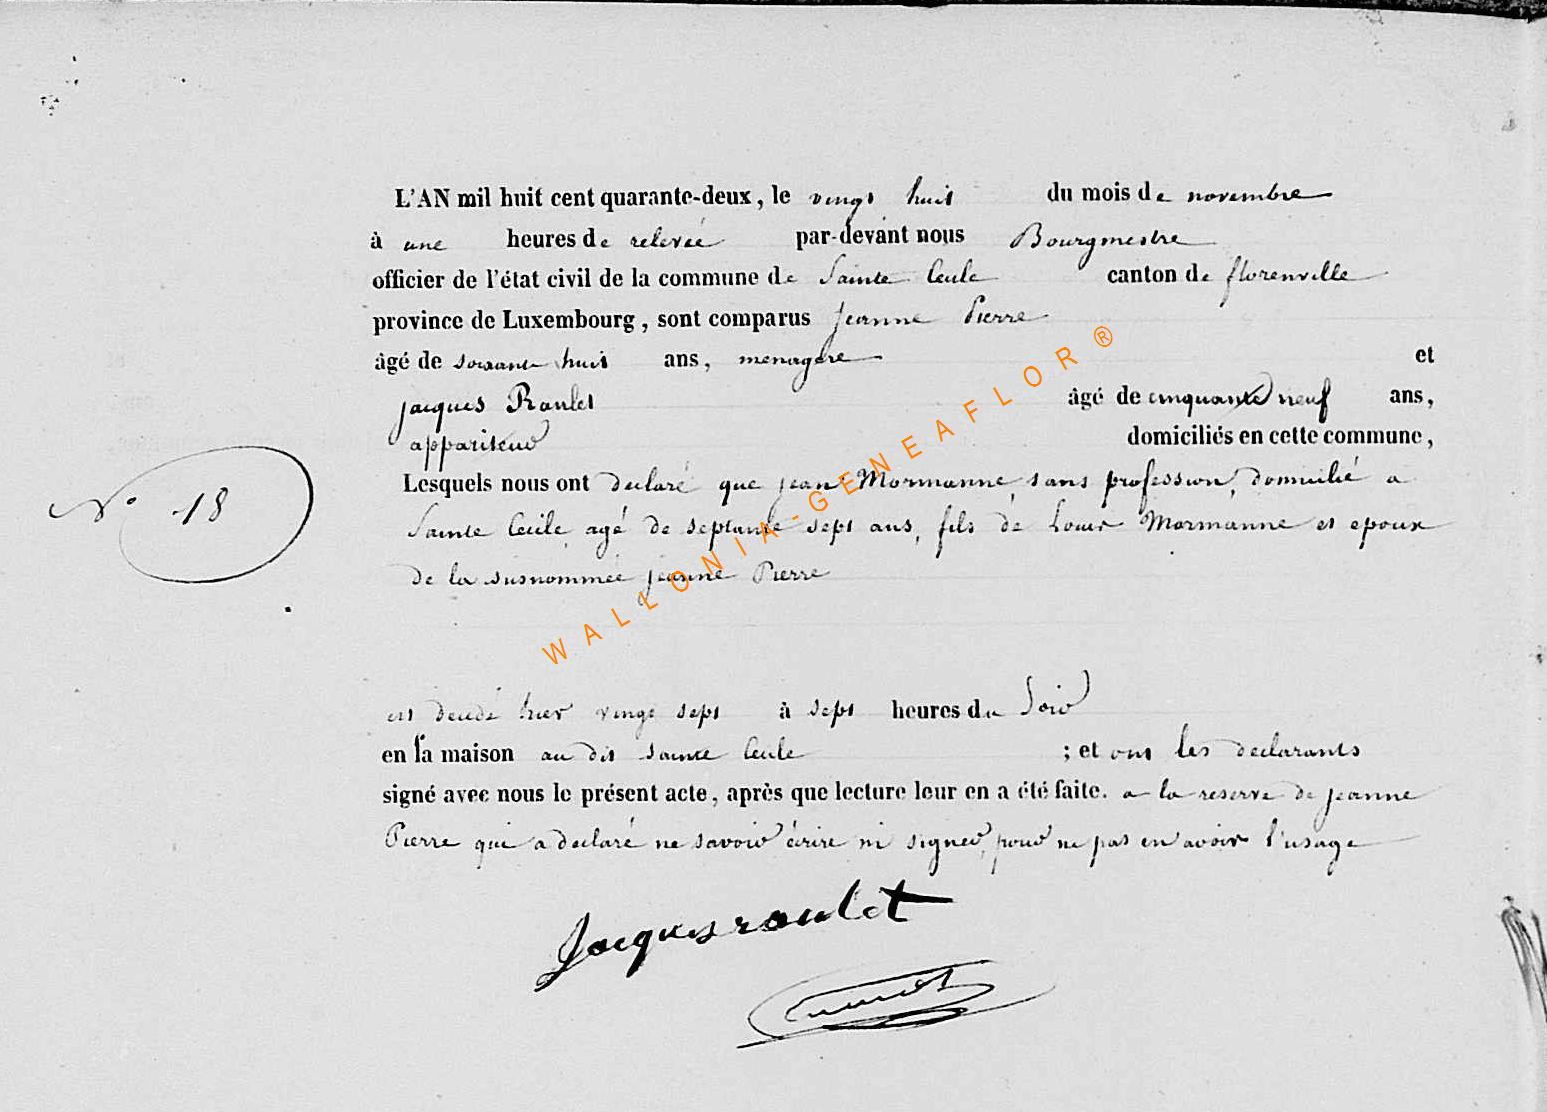 L'AN mil huit cent quarante-deux, le vingt huit du mois de novembre
à une heures de relevée par-devant nous Bourgmestre
officier de l'état civil de la commune de Sainte Cecile canton de florenville
province de Luxembourg, sont comparus Jeanne Pierre
âgé de soixante huit ans, menagère et
jacques Roulet âgé de cinquante neuf ans,
appariteur domiciliés en cette commune,
Lesquels nous ont declaré que jean Mormanne, sans profession, domicilié a
N° 18
Sainte Cecile, agé de septante sept ans, fils de Louis Mormanne et epoux
de la susnommée jeanne Pierre
WALLONIA-GENEAFLOR®
est decedé hier vingt sept à sept heures du Soir
en la maison au dit Sainte Cecile ; et ont les declarants
signé avec nous le présent acte, après que lecture leur en a été faite. a la reserve de jeanne
Pierre qui a declaré ne savoir écrire ni signer, pour ne pas en avoir l'usage
Jacques roulet